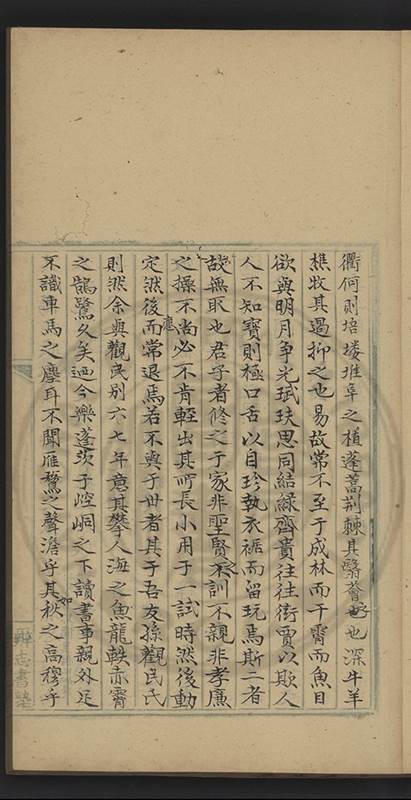 衢何則培塿堆阜之積蓬蒿荆棘其翳薈也深牛羊
樵牧其遏抑之也易故常不至于成林而干霄而魚目
欲與明月爭光珷玞思同結綠齊貴往往衒賈以欺人
人不知寶則極口舌以自珍執衣裾而留玩焉斯二者
誠無取也君子者修之于家非聖賢不訓不親非孝廉
之操不尚必不肯輕出其所長小用于一試時然後動
定然後而常退焉若不與于世者其于吾友孫觀民氏
則然余與觀民別六七年意其攀人海之魚龍軼赤霄
之鵠鷺久矣迺今樂蓬茨于崆峒之下讀書事親外足
不識車馬之塵耳不聞雁鶩之聲澹乎其如秋之高穆乎